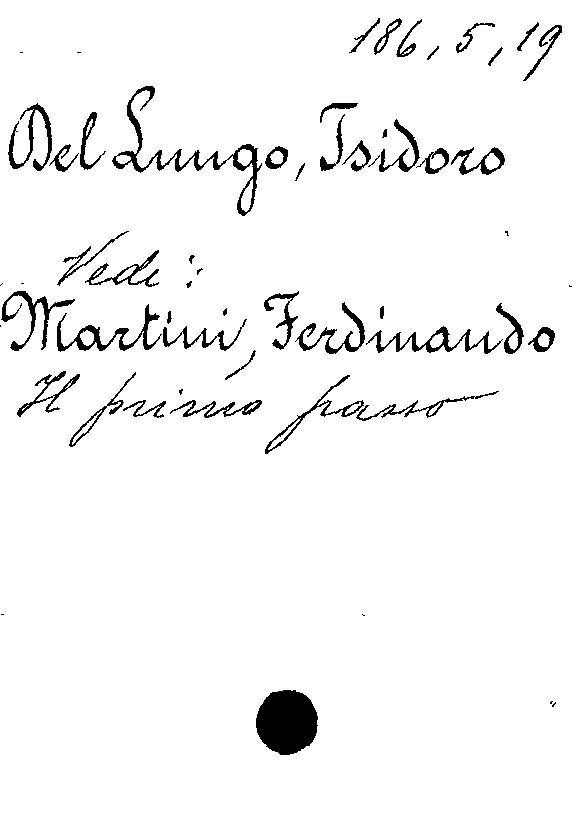 186, 5, 19
Del Lungo, Isidoro
Vedi:
Martini, Ferdinando
Il primo passo